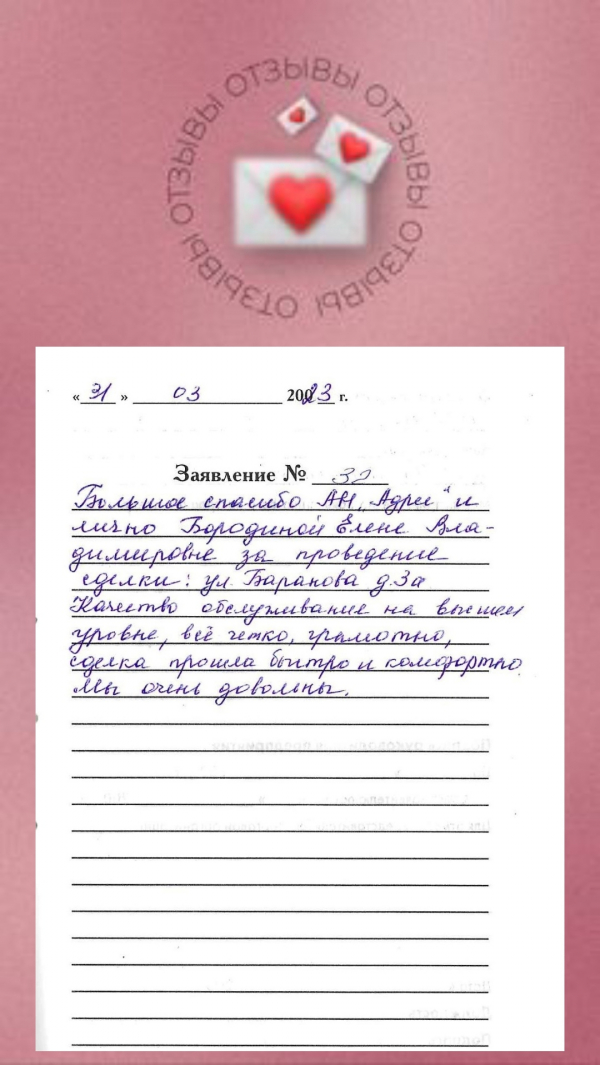 ОТЗЫВЫ ОТЗЫВЫ ОТЗЫВЫ ОТЗЫВЫ ОТЗЫВЫ ОТЗЫВЫ
« 31 » 03 20023 г.
Заявление № 32
Большое спасибо АН „Адрес" и
лично Бородиной Елене Вла-
димировне за проведение
сделки: ул. Баранова д.3а
Качество обслуживание на высшем
уровне, всё четко, грамотно,
сделка прошла быстро и комфортно
Мы очень довольны.